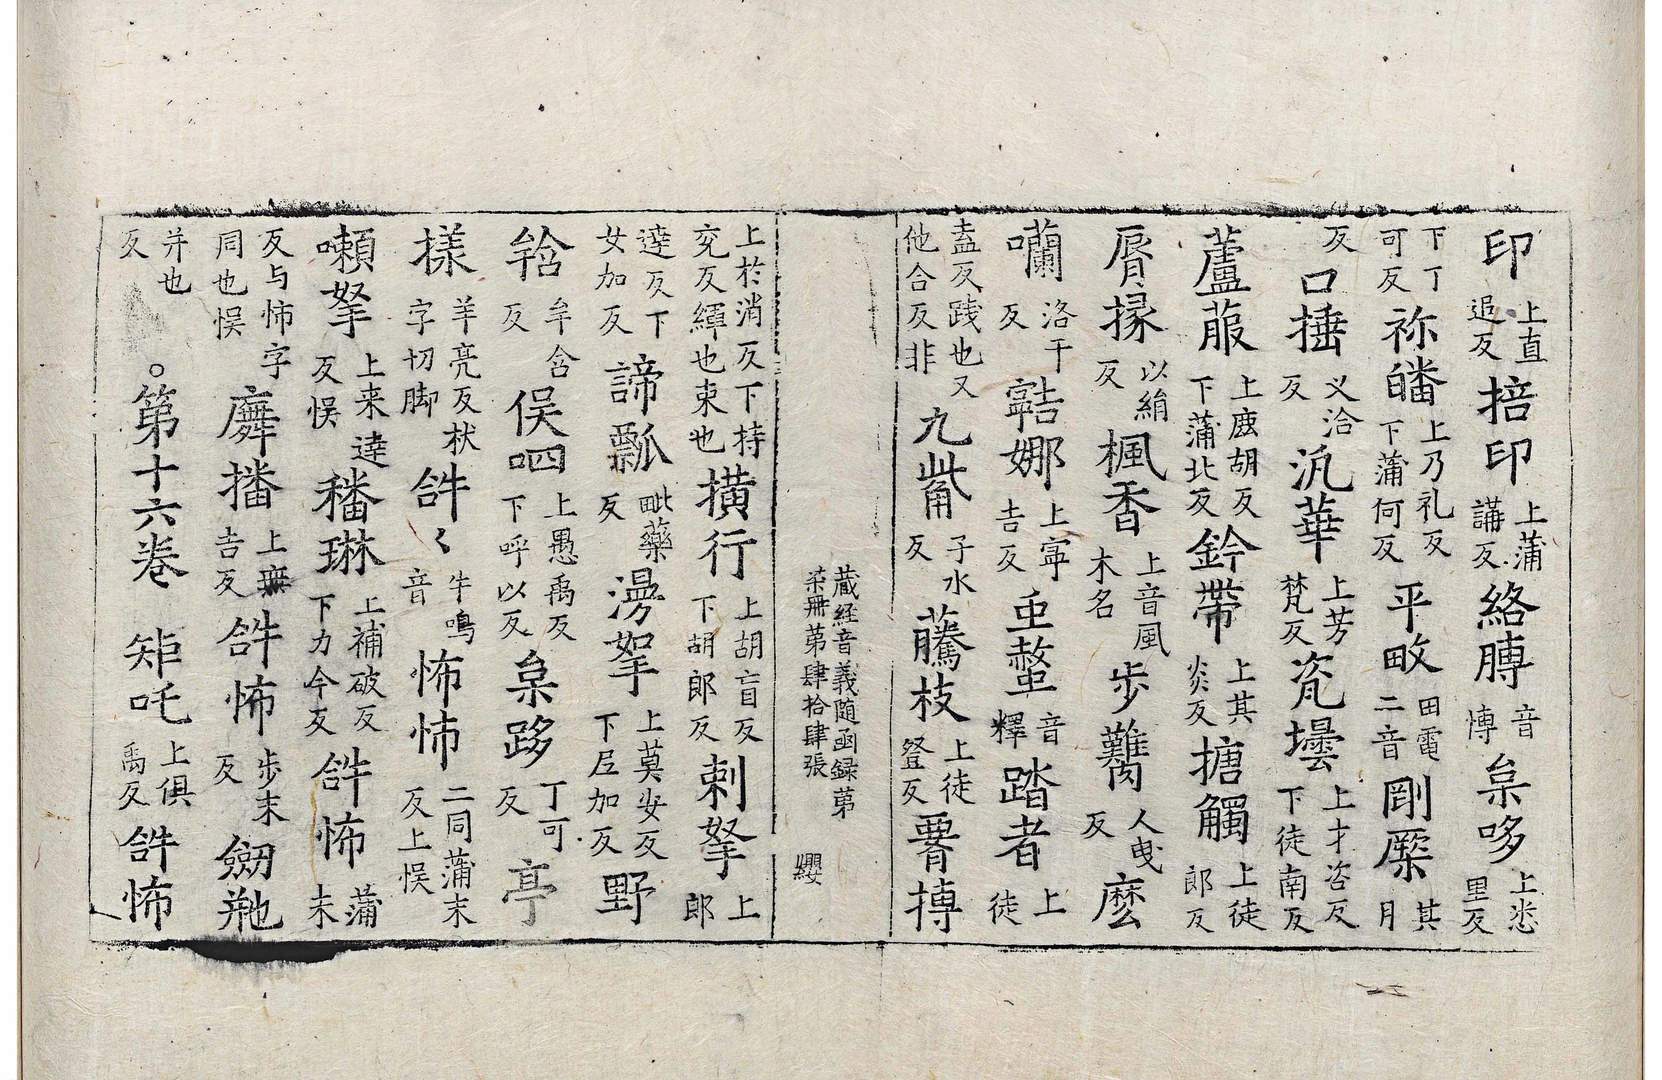 印上直追反掊印上蒲講反絡膊音博枲哆上㳟里反
下丁可反祢皤上乃礼反下蒲何反平畋田電二音剛橜其月
反口捶义洽反汎華上芳梵反瓷壜上才咨反下徒南反
蘆菔上鹿胡反下蒲北反鈐帶上其炎反搪觸上徒郎反
脣掾以絹反楓香上音風木名步難人曵反麼
囒洛干反䛿娜上寕吉反重螫音釋踏者上徒
盍反践也又他合反非九觜子水反藤枝上徒登反罯摶
藏经音義随函録苐
苐冊苐肆拾肆張
纓
上於消反下持兖反繟也束也橫行上胡盲反下胡郎反剌拏上郎
逹反下女加反諦瓢毗藥反漫挐上莫半反下𡰱加反野
𤘽牟含反俣呬上愚禹反下呼以反枲跢丁可反亭
様羊亮反栿字切脚𤙖〻牛鳴音怖怖二同蒲末反上悮
嚩拏上来逹反悮皤琳上補破反下力今反𤙖怖蒲末
反与怖字同也悮廦播上無吉反𤙖怖步末反劒虵
并也反○第十六卷矩吒上俱禹反𤙖怖